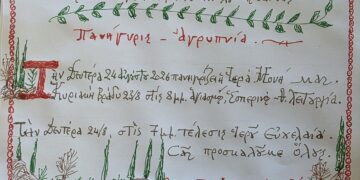 Πανήγυρις - Ἀγρυπνία.
Τὴν Δευτέρα 24 Αὐγούστου 2026 πανηγυρίζει ἡ Ἱερὰ Μονή μας.
Κυριακὴ βράδυ 23/8 στὶς 8 μμ. ἁγιασμός, Ἑσπερινὸς Θ. Λειτουργία.
Τὴν Δευτέρα 24/8, στὶς 7 μμ. τέλεσις Ἱεροῦ Εὐχελαίου.
Σᾶς προσκαλοῦμε ὅλους.